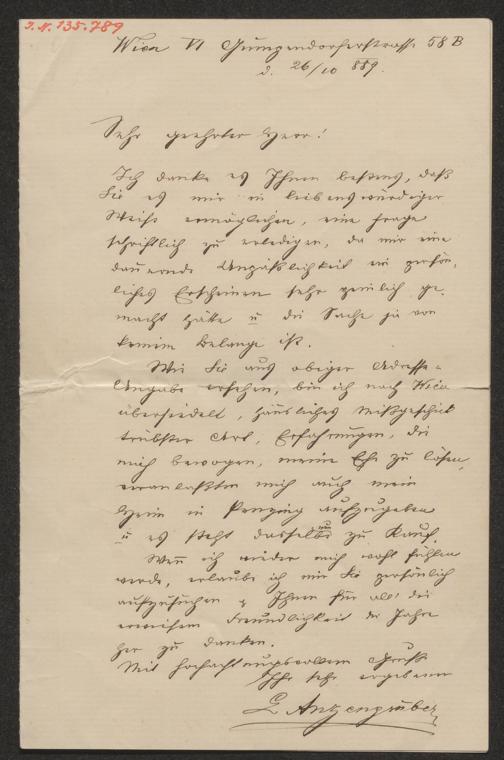 I. N. 135.789
Wien VI Gumpendorferstrasse 58 B
d. 26/10 889.
Sehr geehrter Herr!
Ich danke es Ihnen bestens, daß
Sie es mir in liebenswürdiger
Weise ermöglichen, eine Frage
schriftlich zu erledigen, da mir eine
dauernde Unpäßlichkeit ein persön-
liches Erscheinen sehr peinlich ge-
macht hätte u die Sache ja von
keinem Belange ist.
Wie Sie aus obiger Adresse-
Angabe ersehen, bin ich nach Wien
übersiedelt, häusliches Mißgeschick
trübster Art, Erfahrungen, die
mich bewogen, meine Ehe zu lösen,
veranlaßten mich auch mein
Heim in Penzing aufzugeben
u es steht dasselbe nun zu Kauf.
Wenn ich wieder mich wohl fühlen
werde, erlaube ich mir Sie persönlich
aufzusuchen & Ihnen für all' die
erwiesene Freundlichkeit die Jahre
her zu danken.
Mit hochachtungsvollem Gruße
Ihr sehr ergebener
L Anzengruber